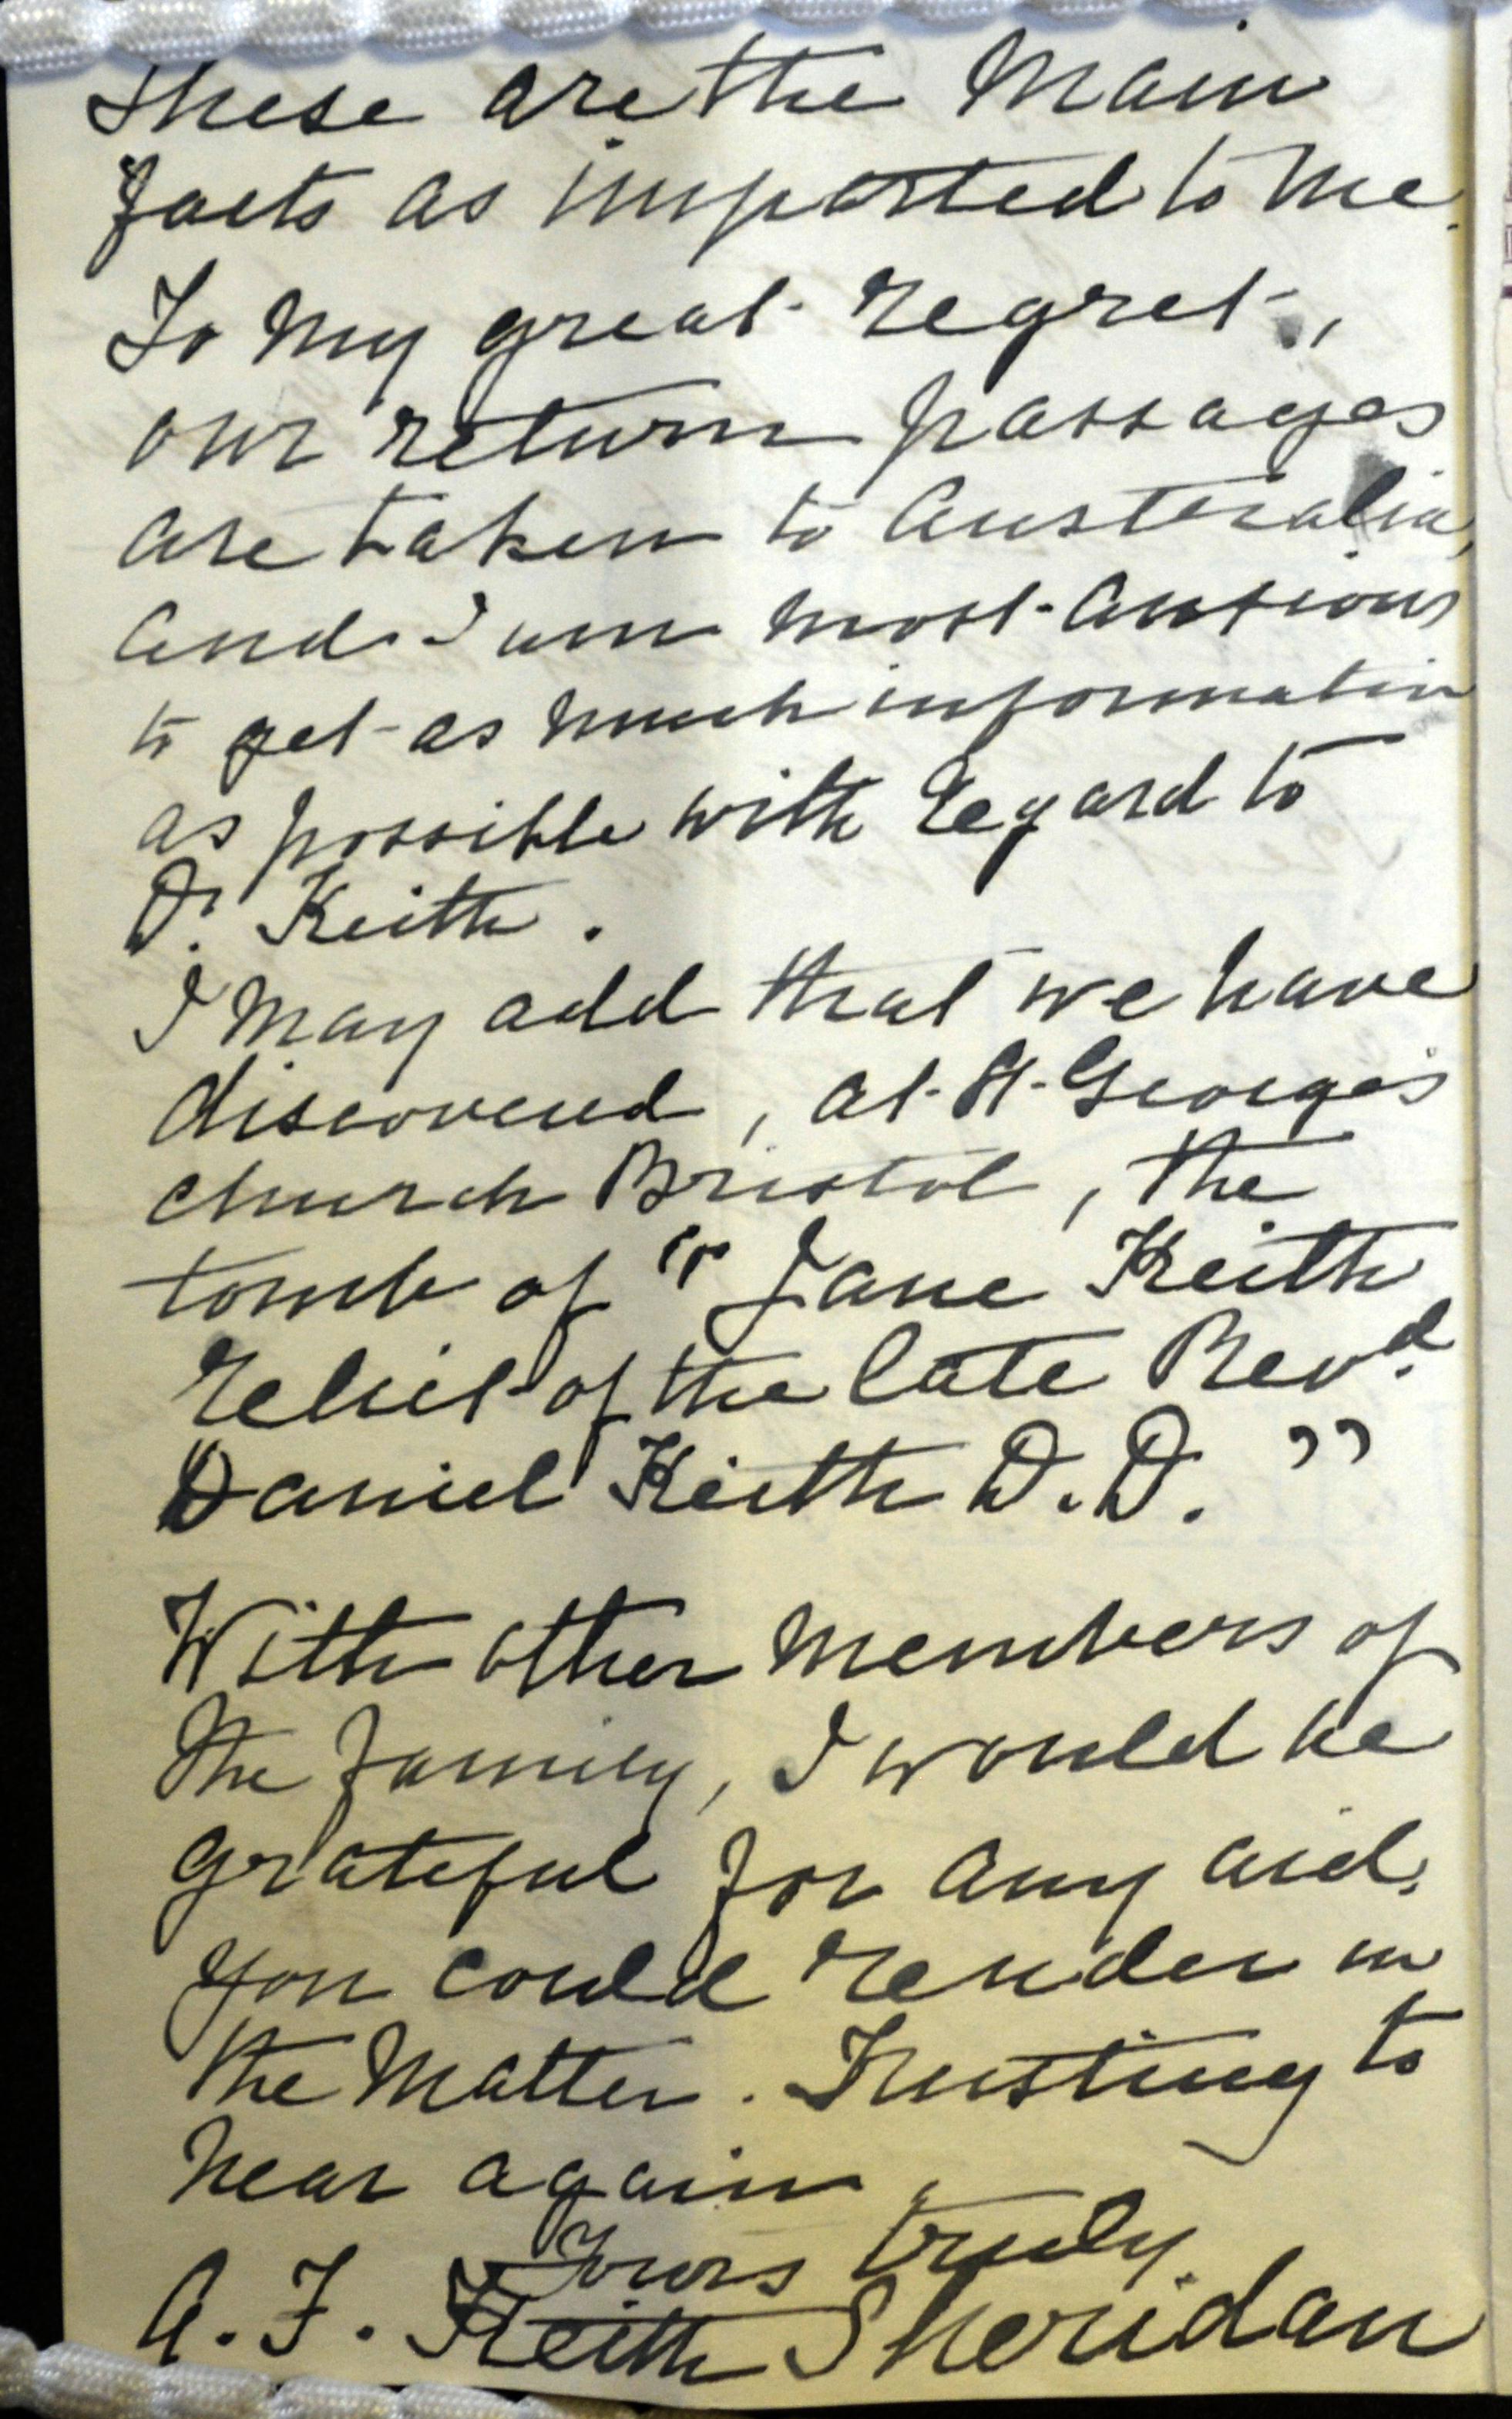 these are the main
facts as imparted to me.
To my great regret,
our return passages
are taken to Australia,
and I am most anxious
to get as much information
as possible with regard to
Dr. Keith.
I may add that we have
discovered, at St. George's
church Bristol, the
tomb of "Jane Keith
relict of the late Revd.
Daniel Keith D.D."
With other members of
the family, I would be
grateful for any aid
you could render in
the matter. Trusting to
hear again,
Yours truly
A. F. Keith Sheridan